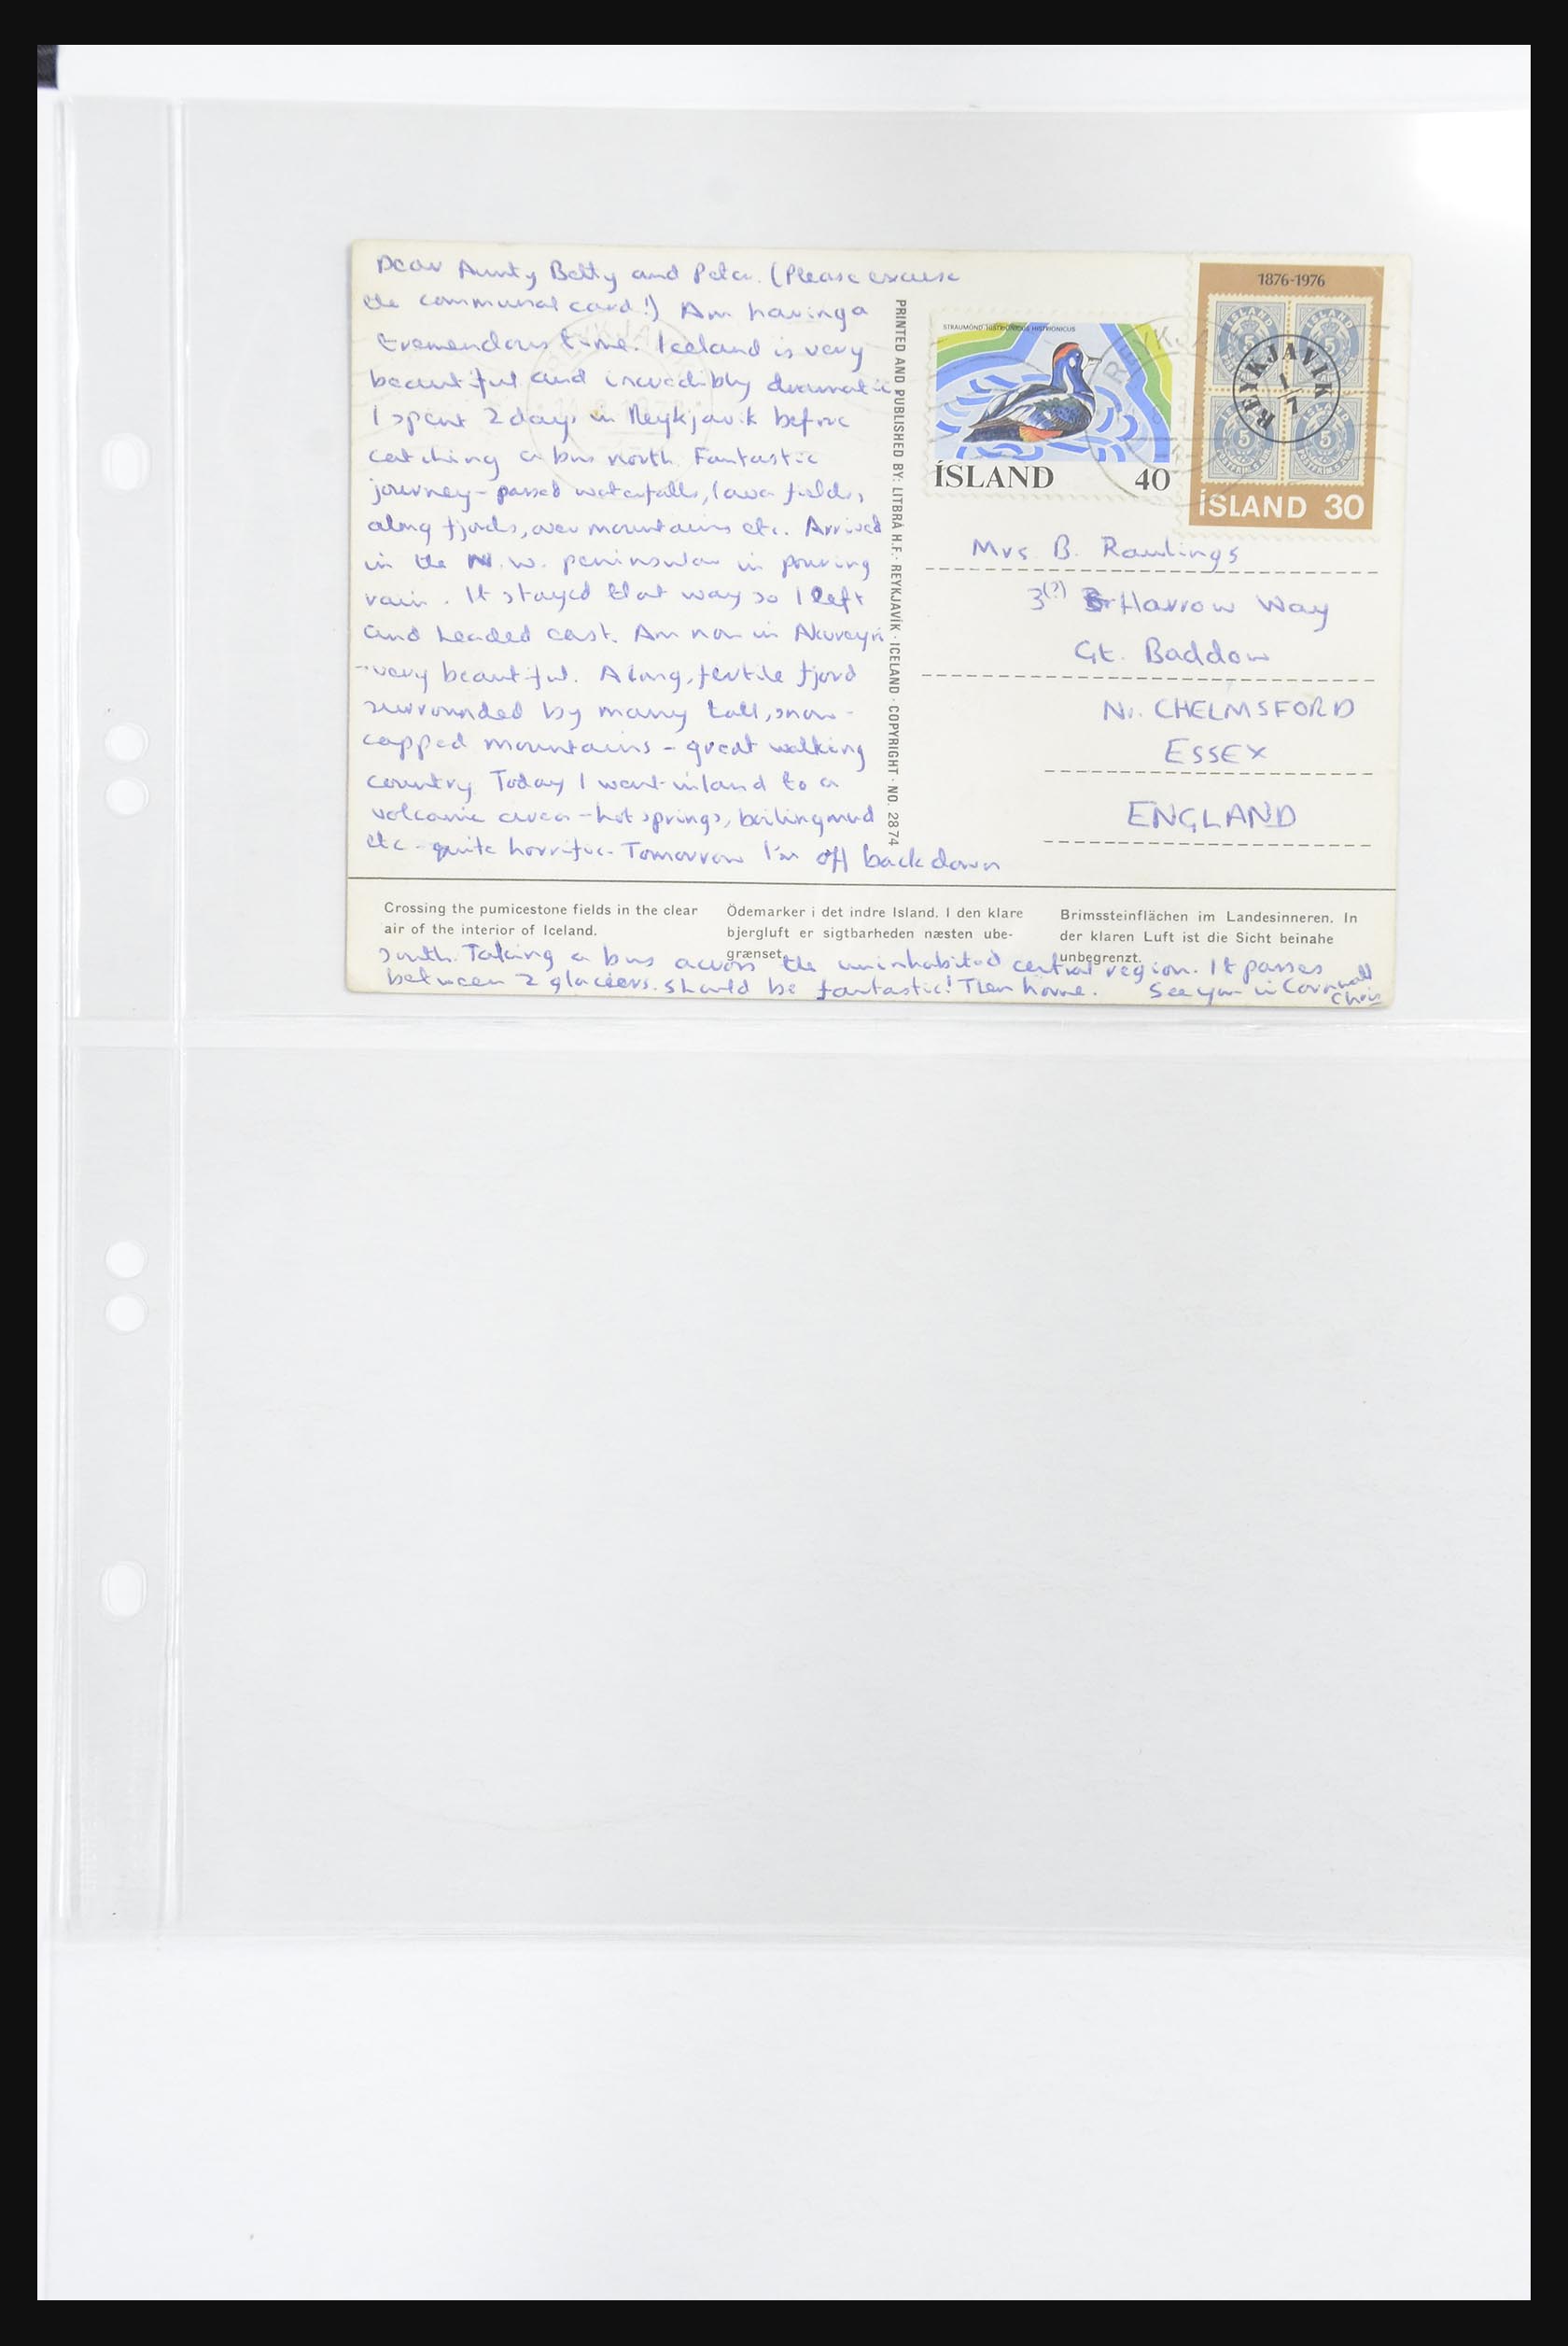 Dear Aunty Betty and Peter. (Please excuse
the communal card!) Am having a
tremendous time. Iceland is very
beautiful and incredibly dramatic
I spent 2 days in Reykjavik before
catching a bus north. Fantastic
journey - passed waterfalls, lava fields,
along fjords, over mountains etc. Arrived
in the N.W. peninsular in pouring
rain. It stayed that way so I left
and headed east. Am now in Akureyri
- very beautiful. A long, fertile fjord
surrounded by many tall, snow-
capped mountains - great walking
country. Today I went inland to a
volcanic area - hot springs, boiling mud
etc - quite horrific. Tomorrow I'm off back down
south. Taking a bus across the uninhabited central region. It passes
between 2 glaciers. Should be fantastic! Then home. See you in Cornwall
Chris
PRINTED AND PUBLISHED BY: LITBRÁ H.F. · REYKJAVÍK · ICELAND · COPYRIGHT · NO. 2874
STRAUMÖND HISTRIONICUS HISTRIONICUS
ÍSLAND 40
1876-1976
ÍSLAND ÍSLAND
5 5
REYKJAVÍK
1/7
5 5
ÍSLAND 30
Mrs B. Rawlings
3(?) Harrow Way
Gt. Baddow
Nr. CHELMSFORD
ESSEX
ENGLAND
Crossing the pumicestone fields in the clear
air of the interior of Iceland.
Ödemarker i det indre Island. I den klare
bjergluft er sigtbarheden næsten ube-
grænset.
Brimssteinflächen im Landesinneren. In
der klaren Luft ist die Sicht beinahe
unbegrenzt.